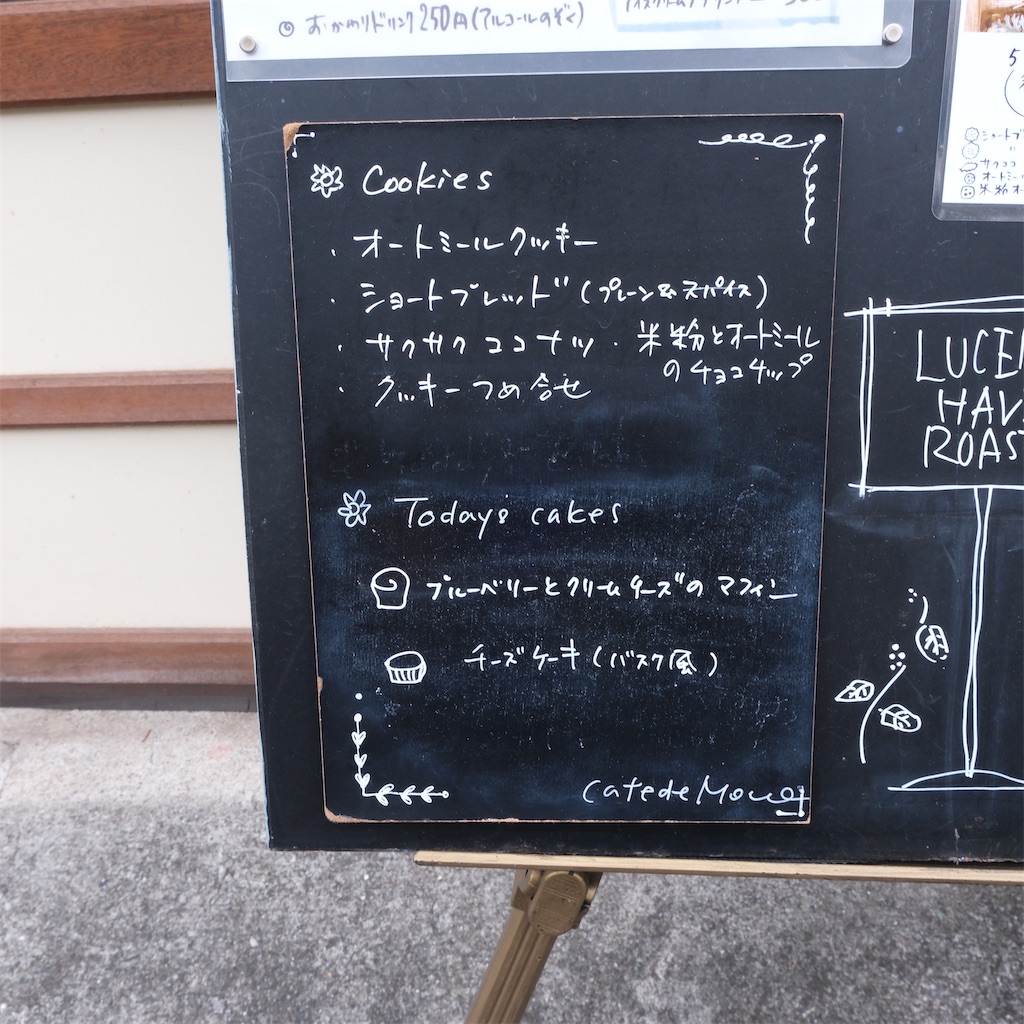 ◎ おかわりドリンク250円(アルコールのぞく)
Cookies
・オートミールクッキー
・ショートブレッド(プレーン&スパイス)
・サクサクココナッツ
・米粉とオートミール
のチョコチップ
・クッキーつめ合せ
Today's cakes
ブルーベリーとクリームチーズのマフィン
チーズケーキ(バスク風)
Cafe de Monet
LUCE
HAV
ROAST
ショートブ
サクココ
オートミー
米粉オ